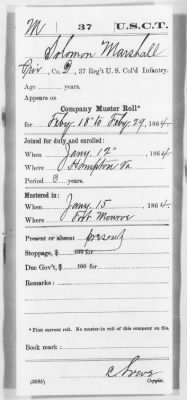 M | 37 | U.S.C.T.
Solomon Marshall
Pvt, Co. D, 37 Reg't U. S. Col'd Infantry.
Age years.
Appears on
Company Muster Roll*
for Feby 18 to Feby 29, 1864.
Joined for duty and enrolled:
When Jany 12, 1864.
Where Hampton Va
Period 3 years.
Mustered in:
When Jany 15, 1864.
Where Fort Monroe
Present or absent present
Stoppage, $ 100 for
Due Gov't, $ 100 for
Remarks:
*First current roll. No muster-in roll of this company on file.
Book mark:
(358i) Copyist.